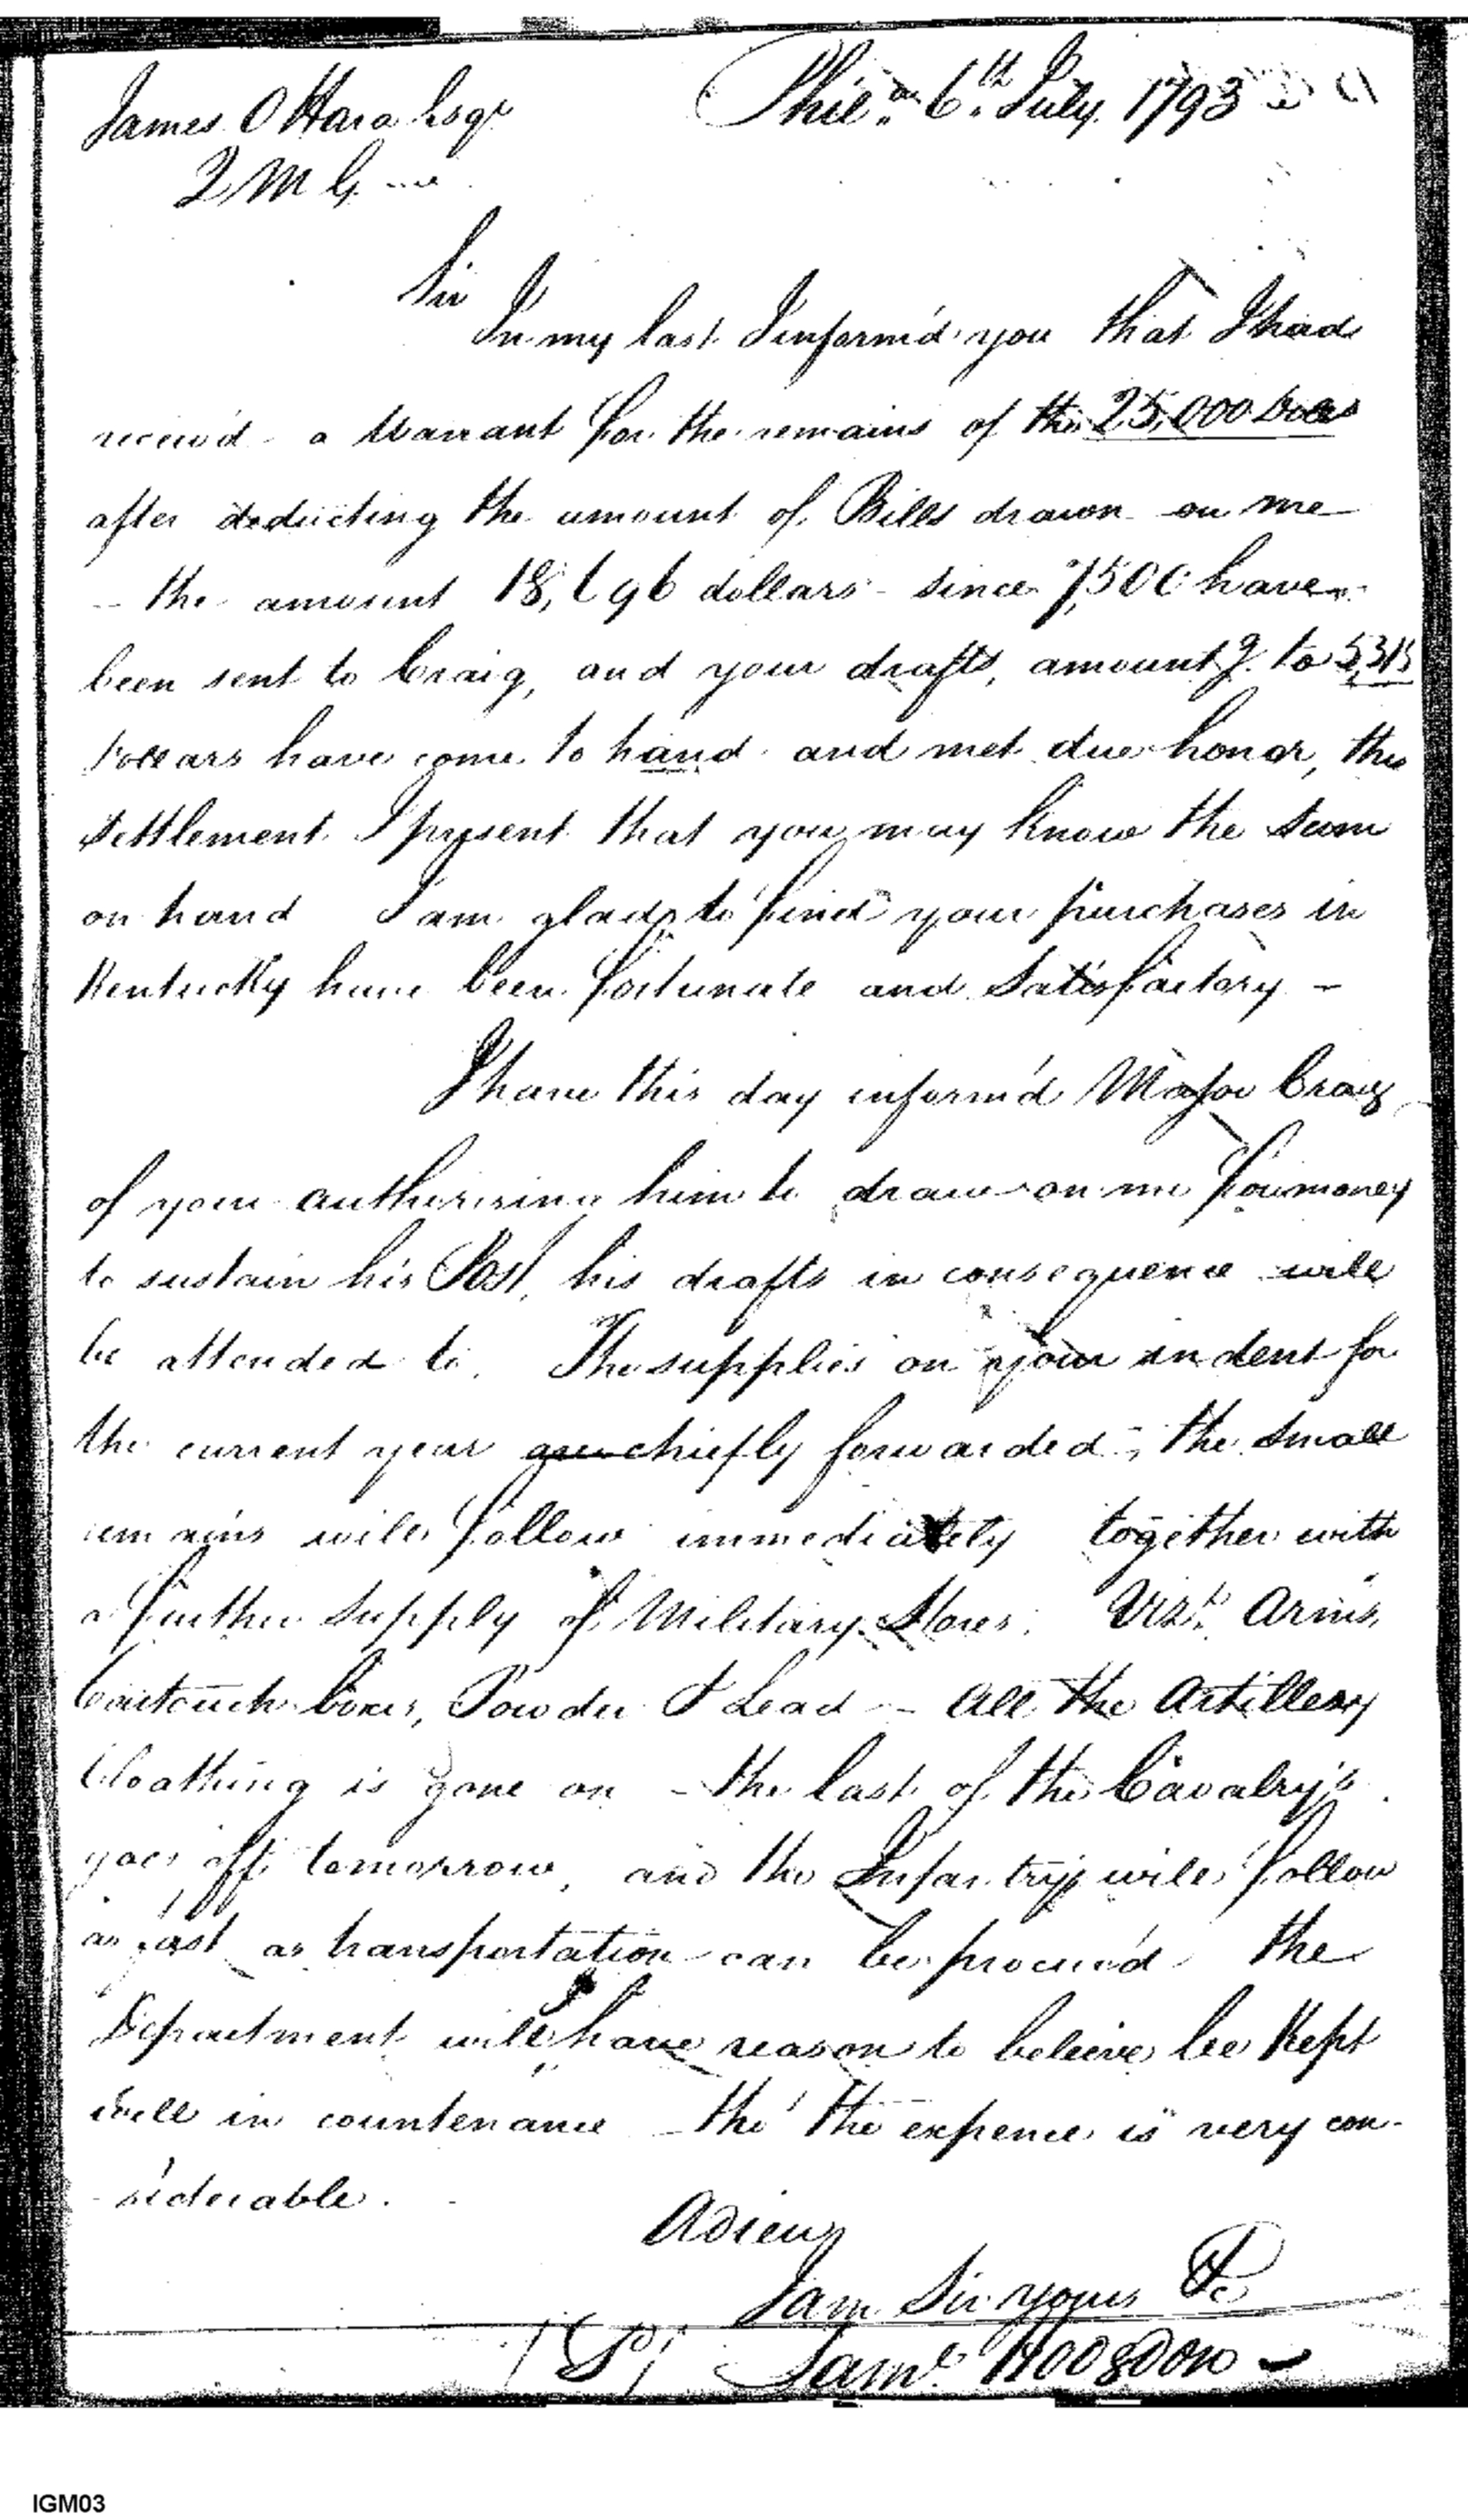 Phila. 6th July 1793
James OHara Esqr
QMG
Sir
In my last I inform'd you that I had
receiv'd a Warrant for the remains of the 25,000 Dollars
after deducting the amount of Bills drawn on me
- the amount 18,696 dollars - since 7,500 have
been sent to Craig, and your drafts, amountg. to
Dollars have come to hand and met due honor, this
Settlement I present that you may know the Sum
on hand I am glad to find your purchases in
Kentucky have been fortunate and Satisfactory -
I have this day inform'd Major Craig
of your authorising him to draw on me for money
to sustain his Post, his drafts in consequence will
be attended to. The supplies on your indent for
the current year are chiefly forwarded, the small
remains will follow immediately together with
a further Supply of Military Stores. Vizt. Arms,
Cartouch boxes, Powder & Lead - All the Artillery
Cloathing is gone on - the last of the Cavalry's
goes off tomorrow, and the Infantry will follow
as fast as transportation can be procur'd the
Department will I have reason to beleive be Kept
well in countenance - tho' the expence is very con-
-siderable.
Adieu
I am Sir yours &c
Saml. Hodgdon -
IGM03